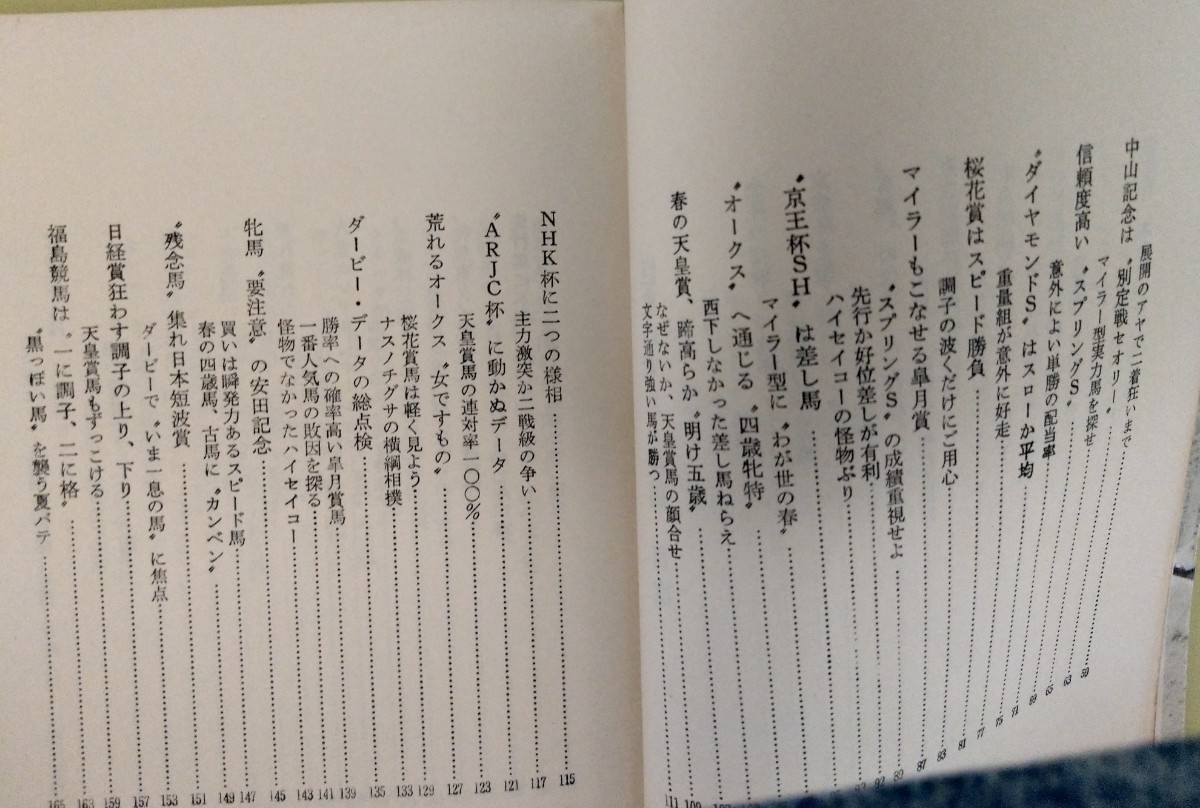 展開のアヤで二着狂いまで
中山記念は〝別定戦セオリー〟 59
マイラー型実力馬を探せ 63
信頼度高い〝スプリングS〟 65
意外によい単勝の配当率 69
〝ダイヤモンドS〟はスローか平均 71
重量組が意外に好走 75
桜花賞はスピード勝負 77
調子の波くだけにご用心 81
マイラーもこなせる皐月賞 83
〝スプリングS〟の成績重視せよ 87
先行か好位差しが有利 89
ハイセイコーの怪物ぶり 92
〝京王杯SH〟は差し馬
マイラー型に〝わが世の春〟
〝オークス〟へ通じる〝四歳牝特〟
西下しなかった差し馬ねらえ
春の天皇賞、蹄高らか〝明け五歳〟
なぜないか、天皇賞馬の顔合せ 109
文字通り強い馬が勝つ 111
NHK杯に二つの様相 115
主力激突か二戦級の争い 117
〝ARJC杯〟に動かぬデータ 121
天皇賞馬の連対率一〇〇% 123
荒れるオークス〝女ですもの〟 127
桜花賞馬は軽く見よう 129
ナスノチグサの横綱相撲 133
ダービー・データの総点検 135
勝率への確率高い皐月賞馬 139
一番人気馬の敗因を探る 141
怪物でなかったハイセイコー 143
牝馬〝要注意〟の安田記念 145
買いは瞬発力あるスピード馬 147
春の四歳馬、古馬に〝カンベン〟 149
〝残念馬〟集れ日本短波賞 151
ダービーで〝いま一息の馬〟に焦点 153
日経賞狂わす調子の上り、下り 157
天皇賞馬もずっこける 159
福島競馬は〝一に調子、二に格〟 163
〝黒っぽい馬〟を襲う夏バテ 165